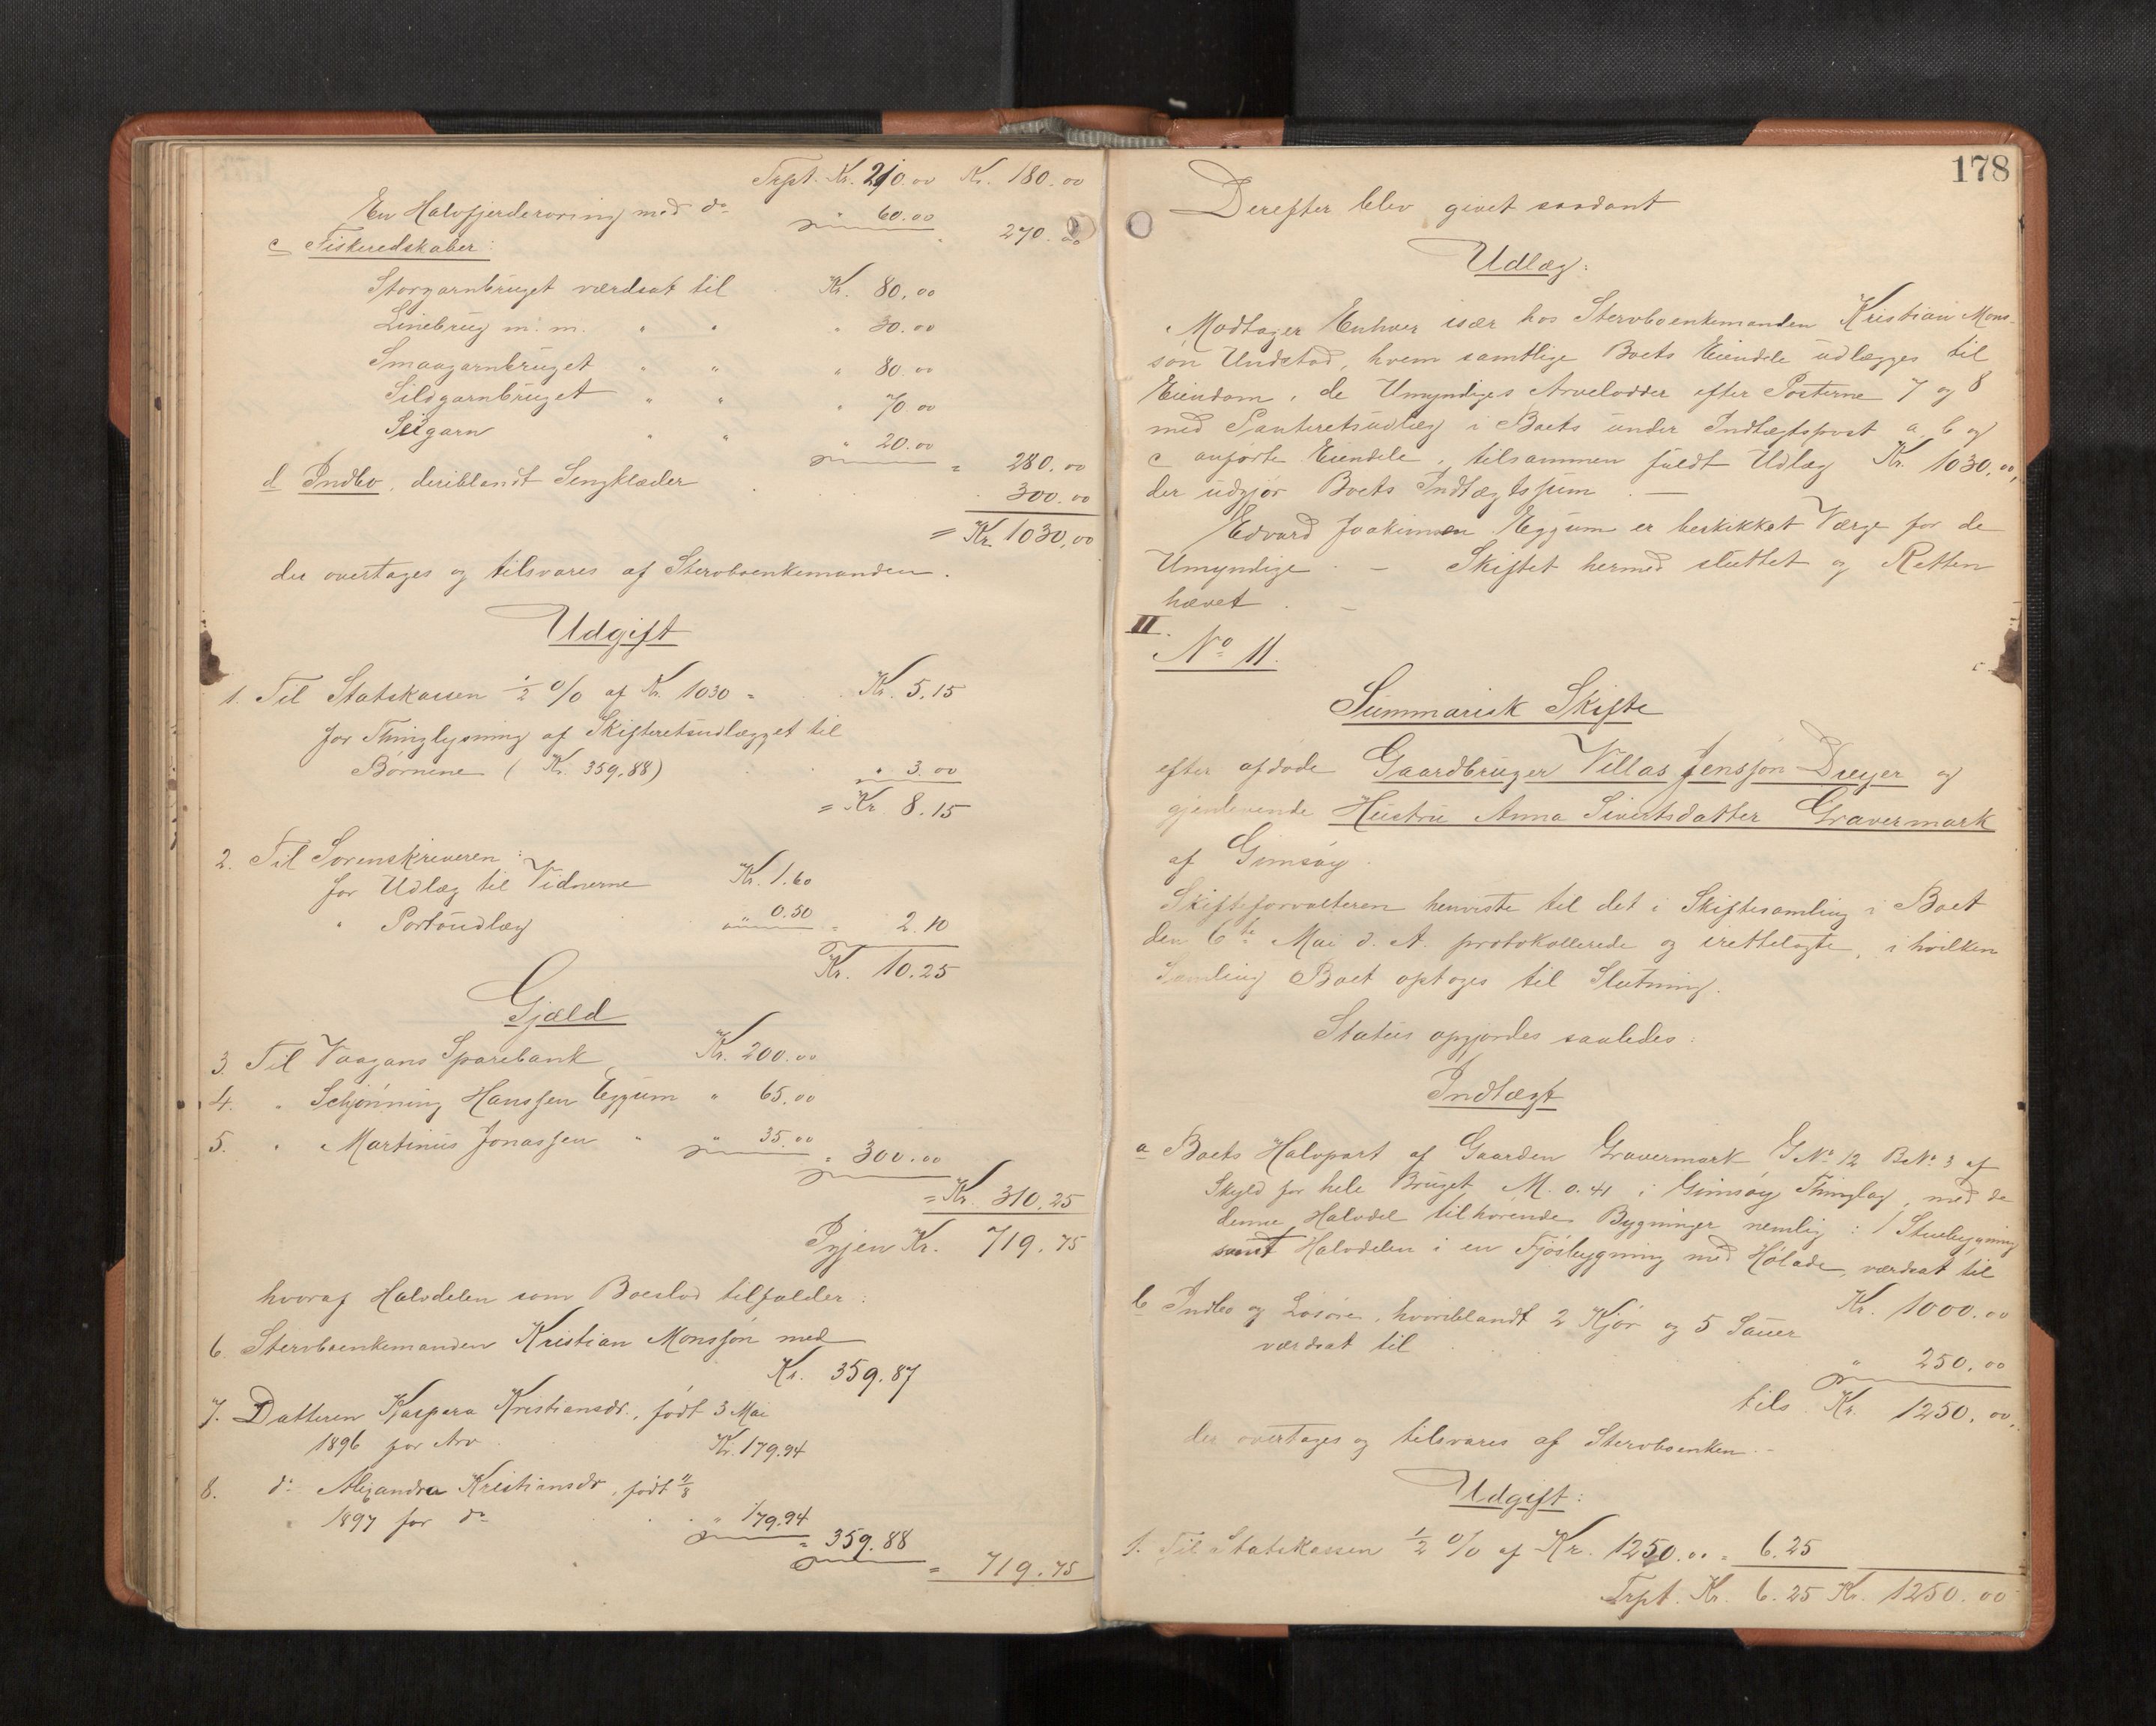 Trpt. Kr. 210.00 Kr. 180.00
En Halvfjerderoring med do " 60.00
" 270.00
c Fiskeredskaber:
Storgarnbruget værdsat til Kr. 80.00
Linebrug m. m. " " " 30.00
Smaagarnbruget " " " 80.00
Sildgarnbruget " " " 70.00
Seigarn " " " 20.00
= 280.00
d Indbo, deriblandt Sengklæder . . 300.00
= Kr. 1030.00
der overtages og tilsvares af Stervboenkemanden.
Udgift
1. Til Statskassen ½ % af Kr. 1030 = Kr. 5.15
for Thinglysning af Skifteretsudlægget til
Børnene (Kr. 359.88) " 3.00
= Kr. 8.15
2. Til Sorenskriveren:
for Udlæg til Vidnerne Kr. 1.60
" Portoudlæg " 0.50 = 2.10
Kr. 10.25
Gjæld
3. Til Vaagans Sparebank Kr. 200.00
4. " Schjønning Hanssen Eggum " 65.00
5. " Martinus Jonassen " " 35.00
= 300.00
= Kr. 310.25
Igjen Kr. 719.75
hvoraf Halvdelen som Boeslod tilfalder:
6. Stervboenkemanden Kristian Monssøn med
Kr. 359.87
7. Datteren Kaspera Kristiansdr., født 3 Mai
1896 for Arv Kr. 179.94
8. do Alexandra Kristiansdr, født 11/8
1897 for do " 179.94
= 359.88
= 719.75
178
Derefter blev givet saadant
Udlæg:
Modtager Enhver især hos Stervboenkemanden Kristian Mons-
søn Undstad, hvem samtlige Boets Eiendele udlægges til
Eiendom, de Umyndiges Arvelodder efter Posterne 7 og 8
med Panteretsudlæg i Boets under Indtægtspost a, b og
c anførte Eiendele, tilsammen fuldt Udlæg Kr. 1030.00,
der udgjør Boets Indtægtssum. —
Edvard Joakimsen Eggum er beskikket Værge for de
Umyndige. – Skiftet hermed sluttet og Retten
hævet. —
II.
No 11.
Summarisk Skifte
efter afdøde Gaardbruger Villas Jenssøn Dreyer og
gjenlevende Hustru Anna Sivertsdatter Gravermark
af Gimsøy.
Skifteforvalteren henviste til det i Skiftesamling i Boet
den 6te Mai d. A. protokollerede og irettelagte, i hvilken
Samling Boet optoges til Slutning.
Status opgjordes saaledes:
Indtægt
a Boets Halvpart af Gaarden Gravermark GNo 12 BNo 3 af
Skyld for hele Bruget M. 0.41 i Gimsøy Thinglag, med de
denne Halvdel tilhørende Bygninger nemlig: 1 Stuebygning
samt Halvdelen i en Fjøsbygning med Hølade, værdsat til
Kr. 1000.00
b Indbo og Løsøre, hvoriblandt 2 Kjør og 5 Sauer
værdsat til " 250.00
tils. Kr. 1250.00,
der overtages og tilsvares af Stervboenken. –
Udgift:
1. Til Statskassen ½ % af Kr. 1250.00 = 6.25
Trpt. Kr. 6.25 Kr. 1250.00